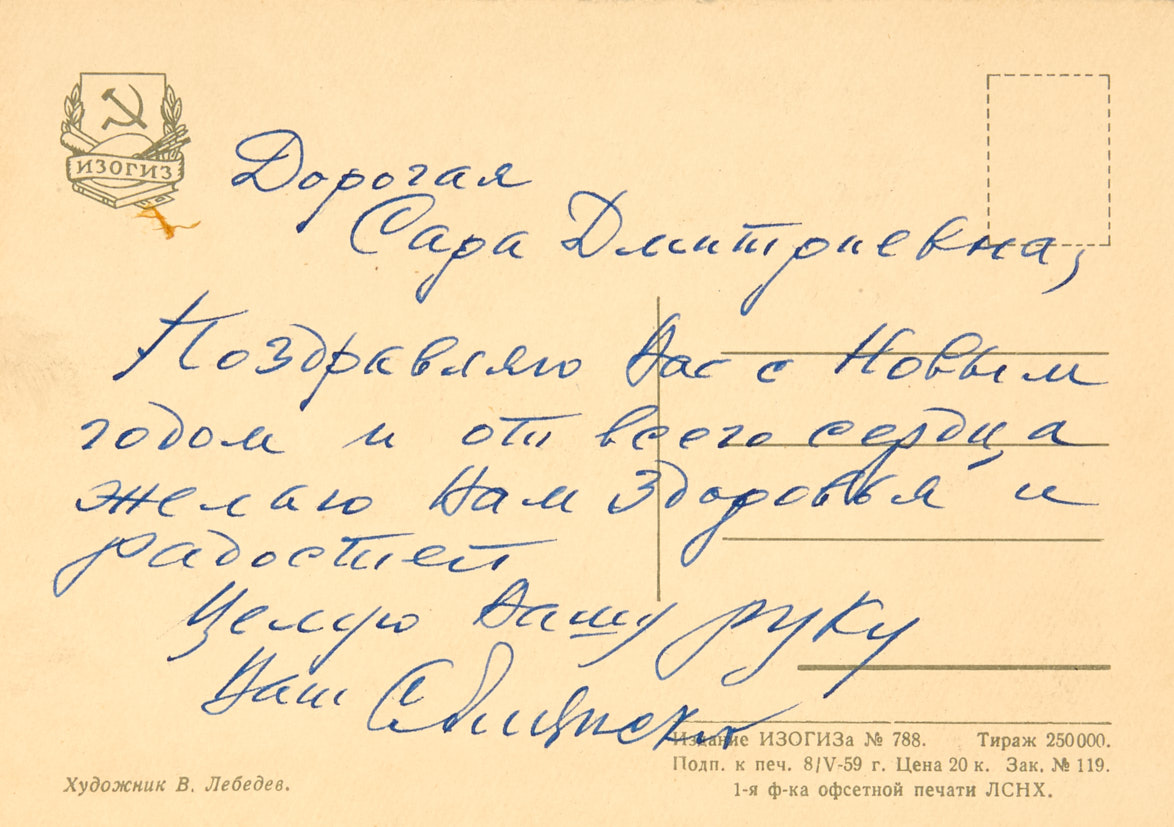 ИЗОГИЗ
Дорогая
Сара Дмитриевна,
Поздравляю Вас с Новым
годом и от всего сердца
желаю Вам здоровья и
радостей
Целую Вашу руку
Ваш
Издание ИЗОГИЗа № 788. Тираж 250000.
Подп. к печ. 8/V-59 г. Цена 20 к. Зак. № 119.
1-я ф-ка офсетной печати ЛСНХ.
Художник В. Лебедев.